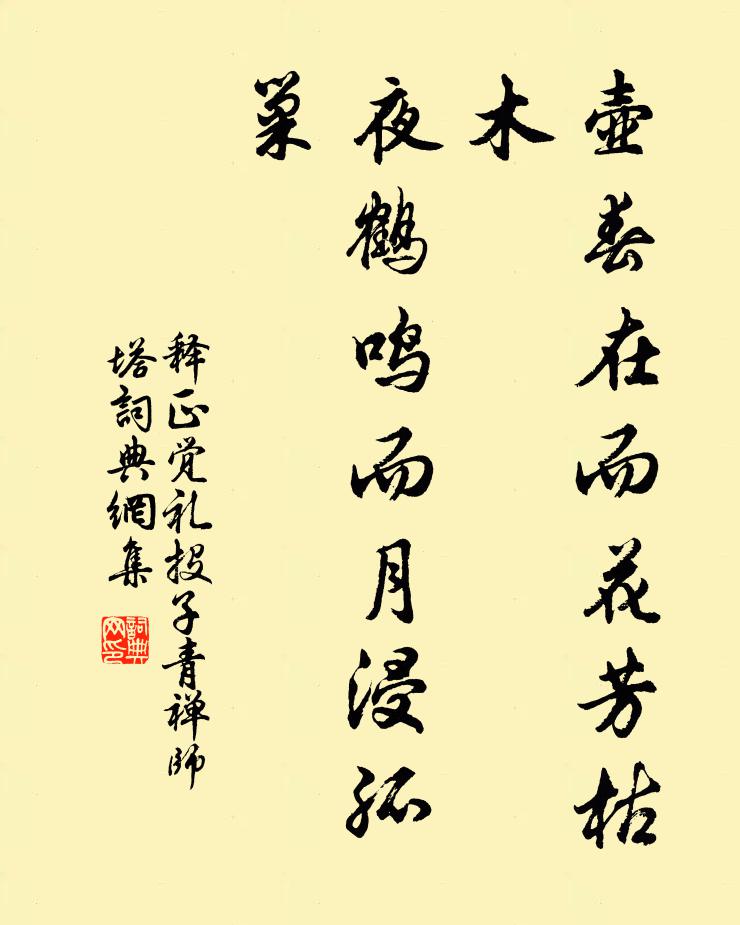 壺春在而花芳枯
木
夜鶴鸣而月浸孤
巢
释正觉礼投子青禅师
塔詞典網集
詞典
网印